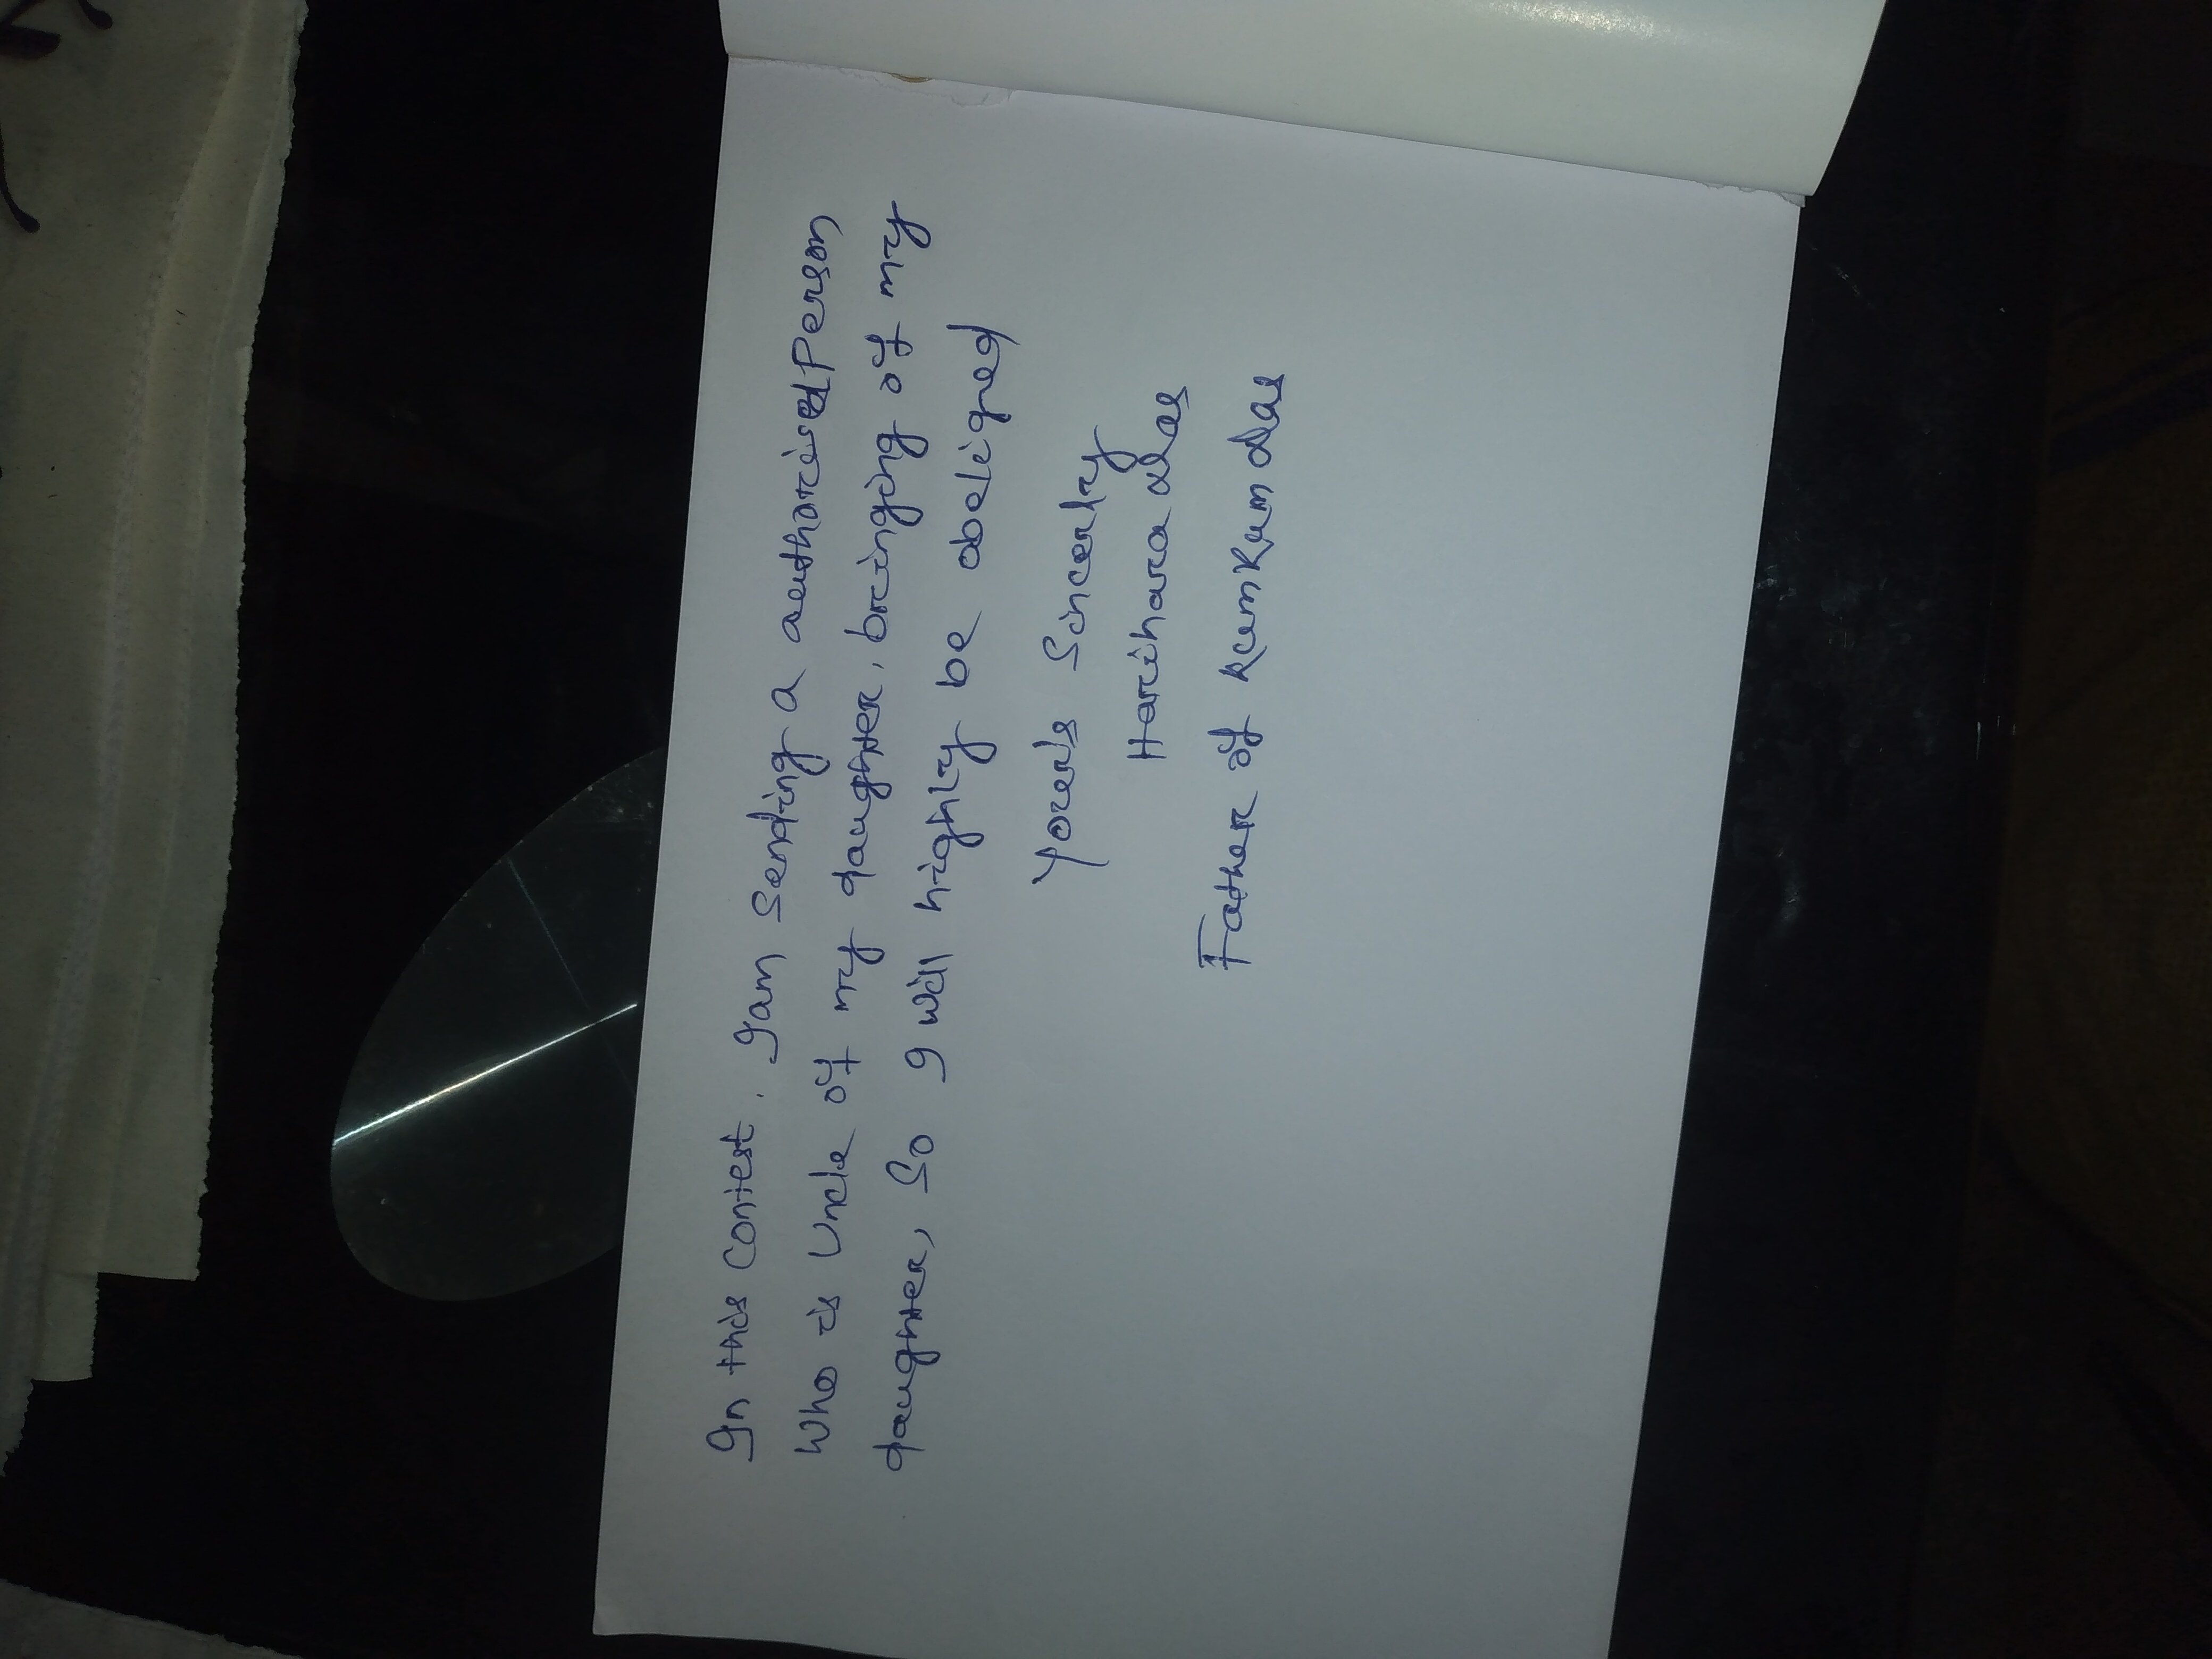 In this Contest, I am Sending a authorised Person
who is Uncle of my daughter, bringing of my
daughter, So I will highly be obeliged
Your's Sincerly
Harihara das
Father of Kumkum das